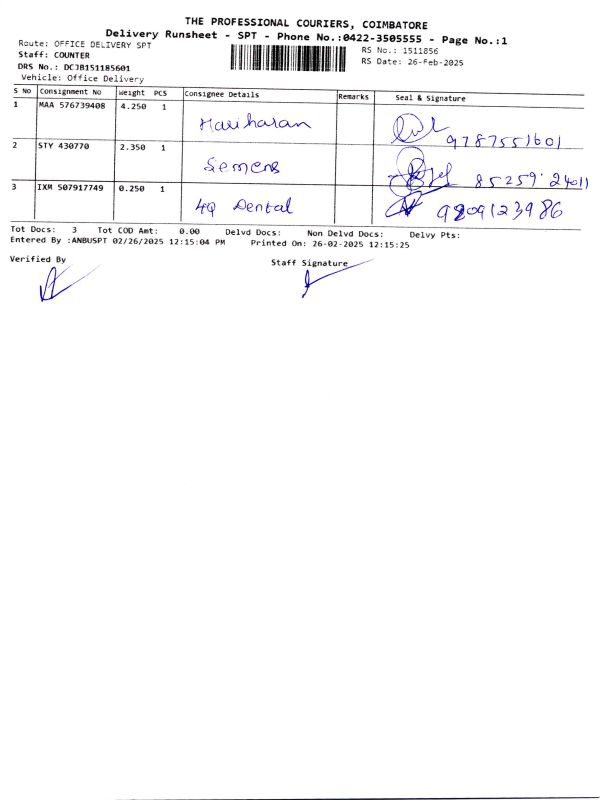 THE PROFESSIONAL COURIERS, COIMBATORE
Delivery Runsheet - SPT - Phone No.:0422-3505555 - Page No.:1
Route: OFFICE DELIVERY SPT
RS No.: 1511856
Staff: COUNTER
RS Date: 26-Feb-2025
DRS No.: DCJB151185601
Vehicle: Office Delivery
S No Consignment No Weight PCS Consignee Details Remarks Seal & Signature
1 MAA 576739408 4.250 1
Hariharan 9787551601
2 STY 430770 2.350 1
Siemens 85259 24011
3 IXM 507917749 0.250 1
4Q Dental 9809123986
Tot Docs: 3 Tot COD Amt: 0.00 Delvd Docs: Non Delvd Docs: Delvy Pts:
Entered By :ANBUSPT 02/26/2025 12:15:04 PM Printed On: 26-02-2025 12:15:25
Verified By Staff Signature